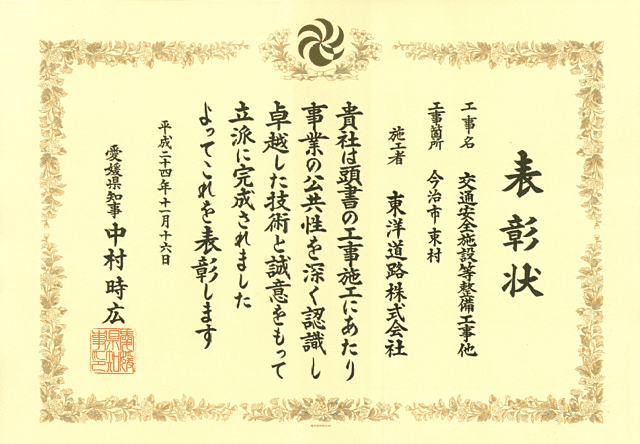 表彰状
工事名 交通安全施設等整備工事他
工事箇所 今治市東村
施工者 東洋道路株式会社
貴社は頭書の工事施工にあたり
事業の公共性を深く認識し
卓越した技術と誠意をもって
立派に完成されました
よってこれを表彰します
平成二十四年十一月十六日
愛媛県知事 中村時広
愛媛県知事印